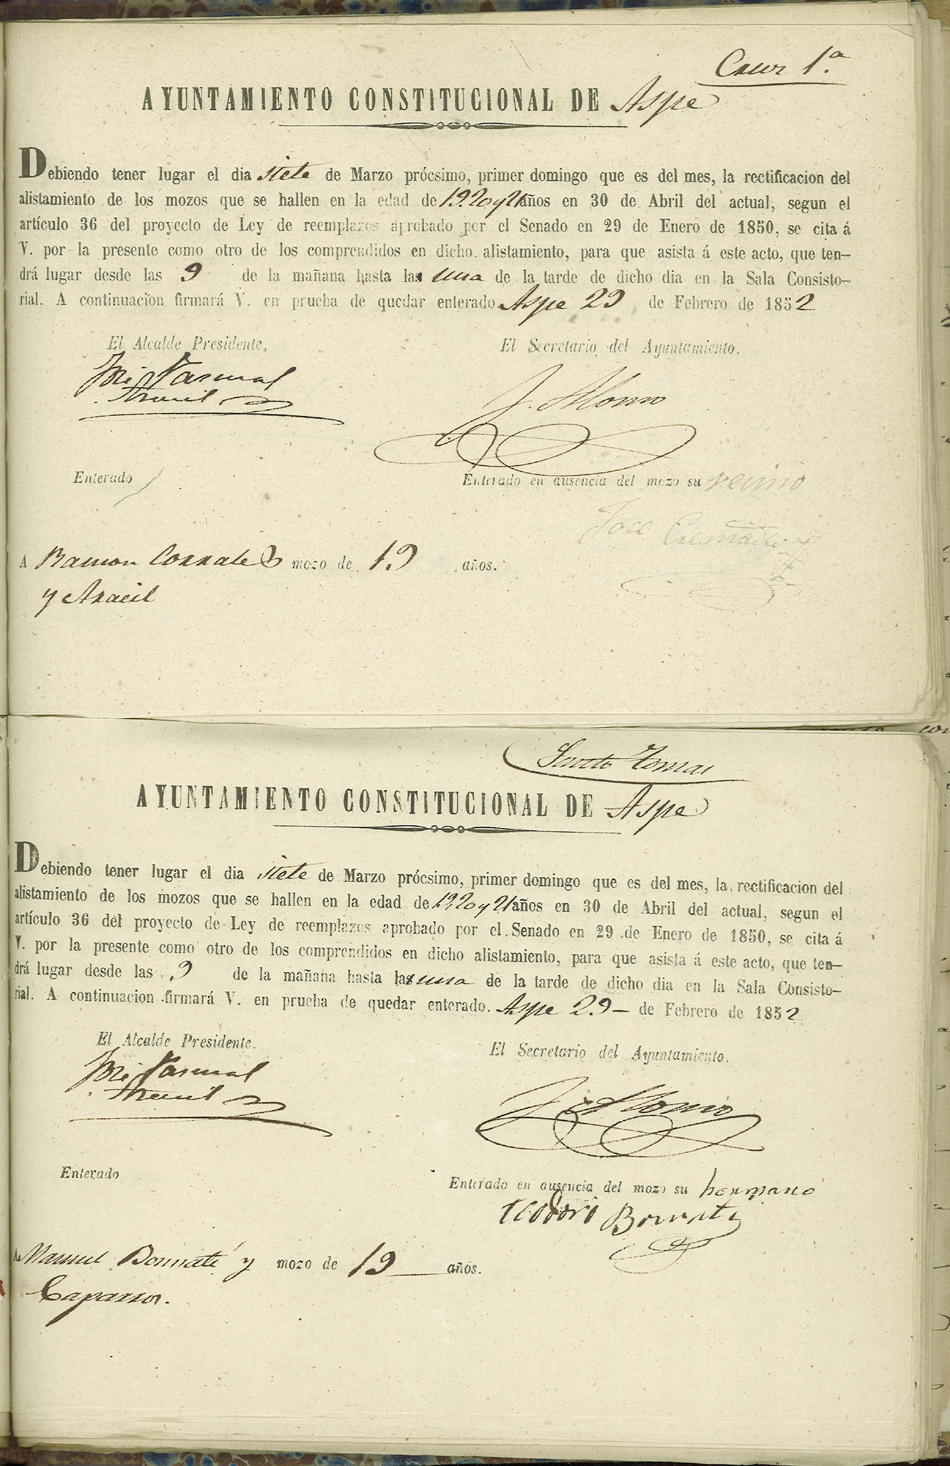 Cruz 1.ª
AYUNTAMIENTO CONSTITUCIONAL DE Aspe
Debiendo tener lugar el dia siete de Marzo prócsimo, primer domingo que es del mes, la rectificacion del
alistamiento de los mozos que se hallen en la edad de 19. 20 y 21 años en 30 de Abril del actual, segun el
artículo 36 del proyecto de Ley de reemplazos aprobado por el Senado en 29 de Enero de 1850, se cita á
V. por la presente como otro de los comprendidos en dicho alistamiento, para que asista á este acto, que ten-
drá lugar desde las 9 de la mañana hasta las una de la tarde de dicho dia en la Sala Consisto-
rial. A continuacion firmará V. en prueba de quedar enterado. Aspe 29 de Febrero de 1852
El Alcalde Presidente.
El Secretario del Ayuntamiento.
José Pascual
J. Alonso
Enterado
Enterado en ausencia del mozo su vecino
Jose
A Ramon Corrales mozo de 19 años.
y Aracil
Santo Tomas
AYUNTAMIENTO CONSTITUCIONAL DE Aspe
Debiendo tener lugar el dia siete de Marzo prócsimo, primer domingo que es del mes, la rectificacion del
alistamiento de los mozos que se hallen en la edad de 19. 20 y 21 años en 30 de Abril del actual, segun el
artículo 36 del proyecto de Ley de reemplazos aprobado por el Senado en 29 de Enero de 1850, se cita á
V. por la presente como otro de los comprendidos en dicho alistamiento, para que asista á este acto, que ten-
drá lugar desde las 9 de la mañana hasta las una de la tarde de dicho dia en la Sala Consisto-
rial. A continuacion firmará V. en prueba de quedar enterado. Aspe 29 de Febrero de 1852
El Alcalde Presidente.
El Secretario del Ayuntamiento.
José Pascual
J. Alonso
Enterado
Enterado en ausencia del mozo su hermano
A Manuel Bonmatí y mozo de 19 años.